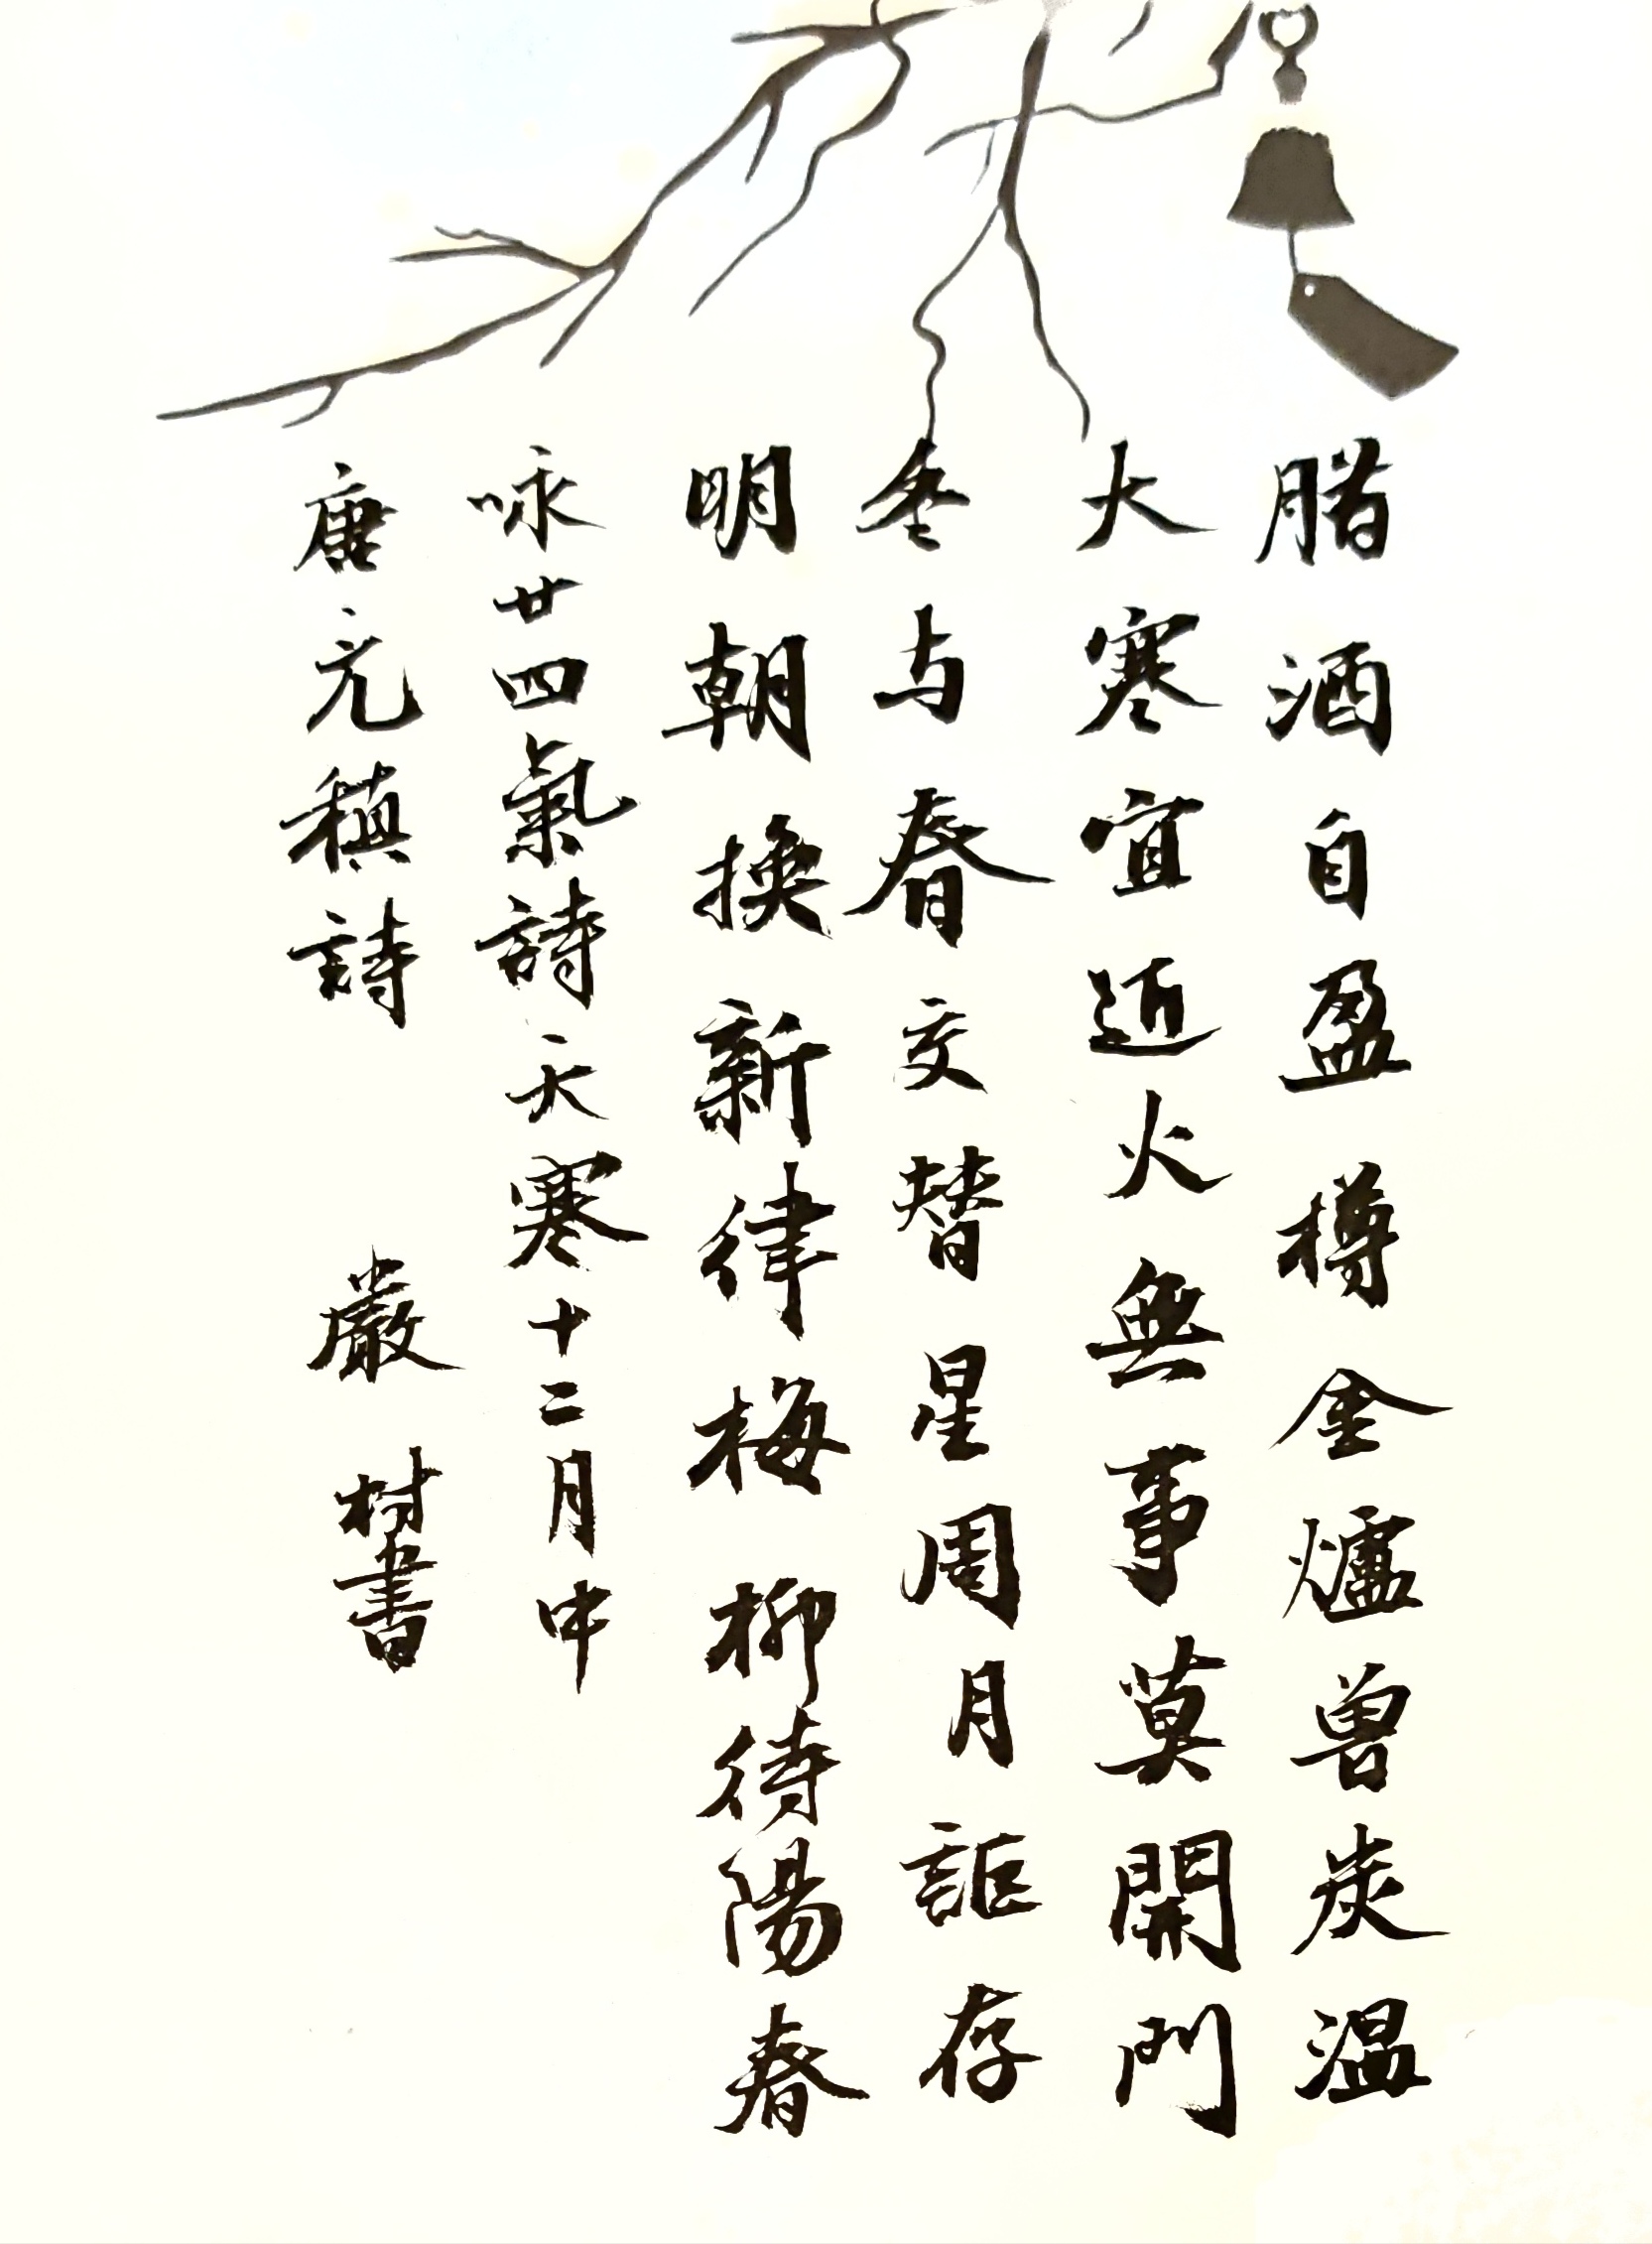 腊酒自盈樽金爐兽炭温
大寒宜近火無事莫開門
冬与春交替星周月詎存
明朝換新律梅柳待陽春
咏廿四氣詩大寒十二月中
唐元稹詩 嚴村書